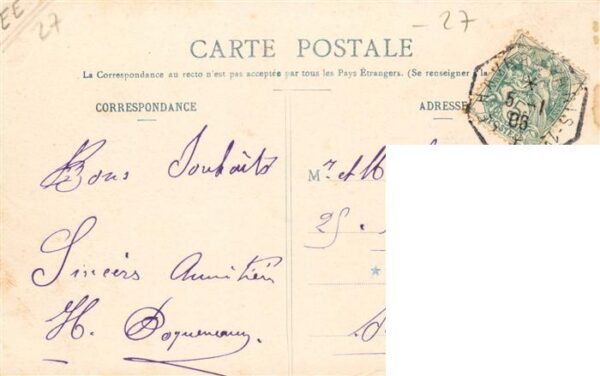 EE
27
- 27
CARTE POSTALE
La Correspondance au recto n'est pas acceptée par tous les Pays Étrangers. (Se renseigner à la
CORRESPONDANCE
ADRESSE
5 - 1
06
Bons Souhaits
Sincèrs Ammitién
H.
Mr et M
25